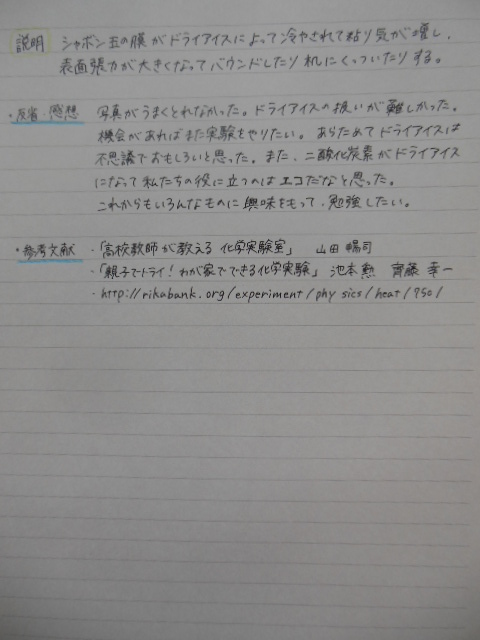 説明 シャボン玉の膜がドライアイスによって冷やされて粘り気が増し、
表面張力が大きくなってバウンドしたり机にくっついたりする。
・反省・感想 写真がうまくとれなかった。ドライアイスの扱いが難しかった。
機会があればまた実験をやりたい。あらためてドライアイスは
不思議でおもしろいと思った。また、二酸化炭素がドライアイス
になって私たちの役に立つのはエコだなと思った。
これからもいろんなものに興味をもって、勉強したい。
・参考文献 ・「高校教師が教える 化学実験室」 山田暢司
・「親子でトライ!わが家でできる化学実験」 池本勲 齊藤幸一
・http://rikabank.org/experiment/physics/heat/950/